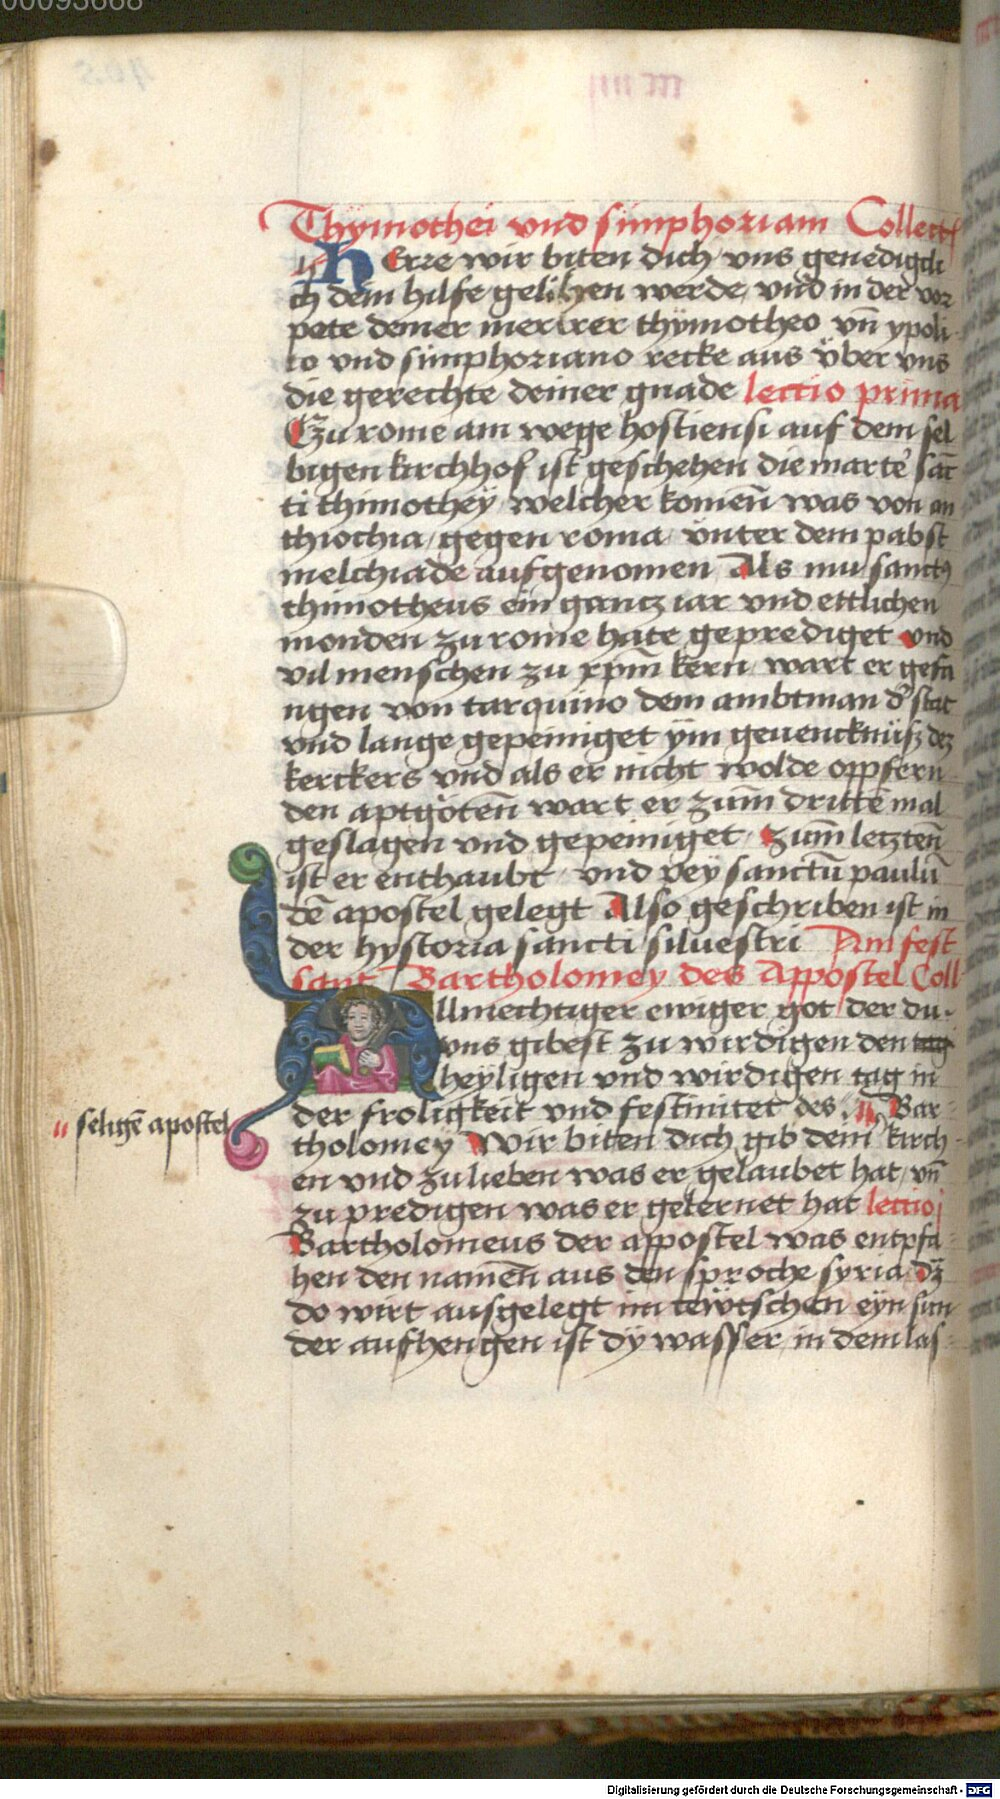 Thymothei vnd simphoriani Collect
HErre wir biten dich vns genedigcli
ch dem hilfe gelihen werde vnd in der vor
pete deiner mertrer thÿmotheo vn̄ ypoli
to vnd simphoriano recke aus v̈ber vns
die gerechte deiner gnade lectio prima
Czu rome am wege hostiensi auf dem sel
bigen kirchhof ist geschehen die marter sāc
ti thimotheÿ welcher komen̄ was von an
thiochia gegen roma vnter dem pabst
melchiade aufgenomen Als nu sanctus
thimotheus ein gancz iar vnd ettlichen
monden zu rome hate geprediget vnd
vil menschen zu xp̄m kern wart er gefa
ngen von tarquino dem ambtman d' stat
vnd lange gepeiniget ÿm geuencknüsz dez
kerckers vnd als er nicht wolde oppfern
den aptgöten̄ wart er zum̄ dritten̄ mal
geslagen vnd gepeiniget zum̄ letzten̄
ist er enthaubt vnd pey sanctū paulū
dē apostel gelegt Also geschriben ist in
der hystoria sancti siluestri Am fest
sant Bartholomey des Appostel Coll
Allmechtiger ewiger got der du
vns gibest zu wirdigen den tag
heÿligen vnd wirdigen tag in
der froligkeit vnd festiuitet des Bar
tholomey Wir biten dich gib dein kirch
en vnd zu lieben was er gelaubet hat vn̄
zu predigen was er gelernet hat lectio j
Bartholomeus der appostel was entpfa
hen den namen̄ aus den sproche syria dz
do wirt ausgelegt im tewtschen eyn sun
der aufhengen ist dÿ wasser in dem las
selige̅ apostel
Digitalisierung gefördert durch die Deutsche Forschungsgemeinschaft - DFG